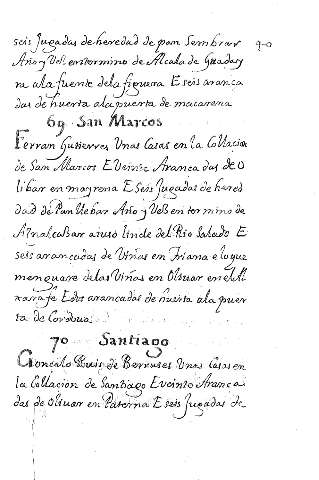 seis Jugadas de heredad de pan Sembrar
Año y Vés en termino de Alcala de Guaday
ra ala fuente dela figuera E seis aranca
das de huerta ala puerta de macarena
69 San Marcos
Ferran Gutierres Unas Casas en la Collacion
de San Marcos E Veinte Arancadas de O
libar en mayrena E Seis Jugadas de hered
dad de Pan llebar Año y Ves en termino de
Aznalcasar aiuso linde del Rio Salado E
seis arancadas de Viñas en Triana e lo que
menguare de las Viñas en Olivar en el Al
xarafe E dos arancadas de huerta ala puer
ta de Cordova
70 Santiago
Goncalo Ruis de Berruses Unas Casas en
la Collacion de Santiago E veinte Aranca
das de Olivar en Paterna E seis Jugadas de